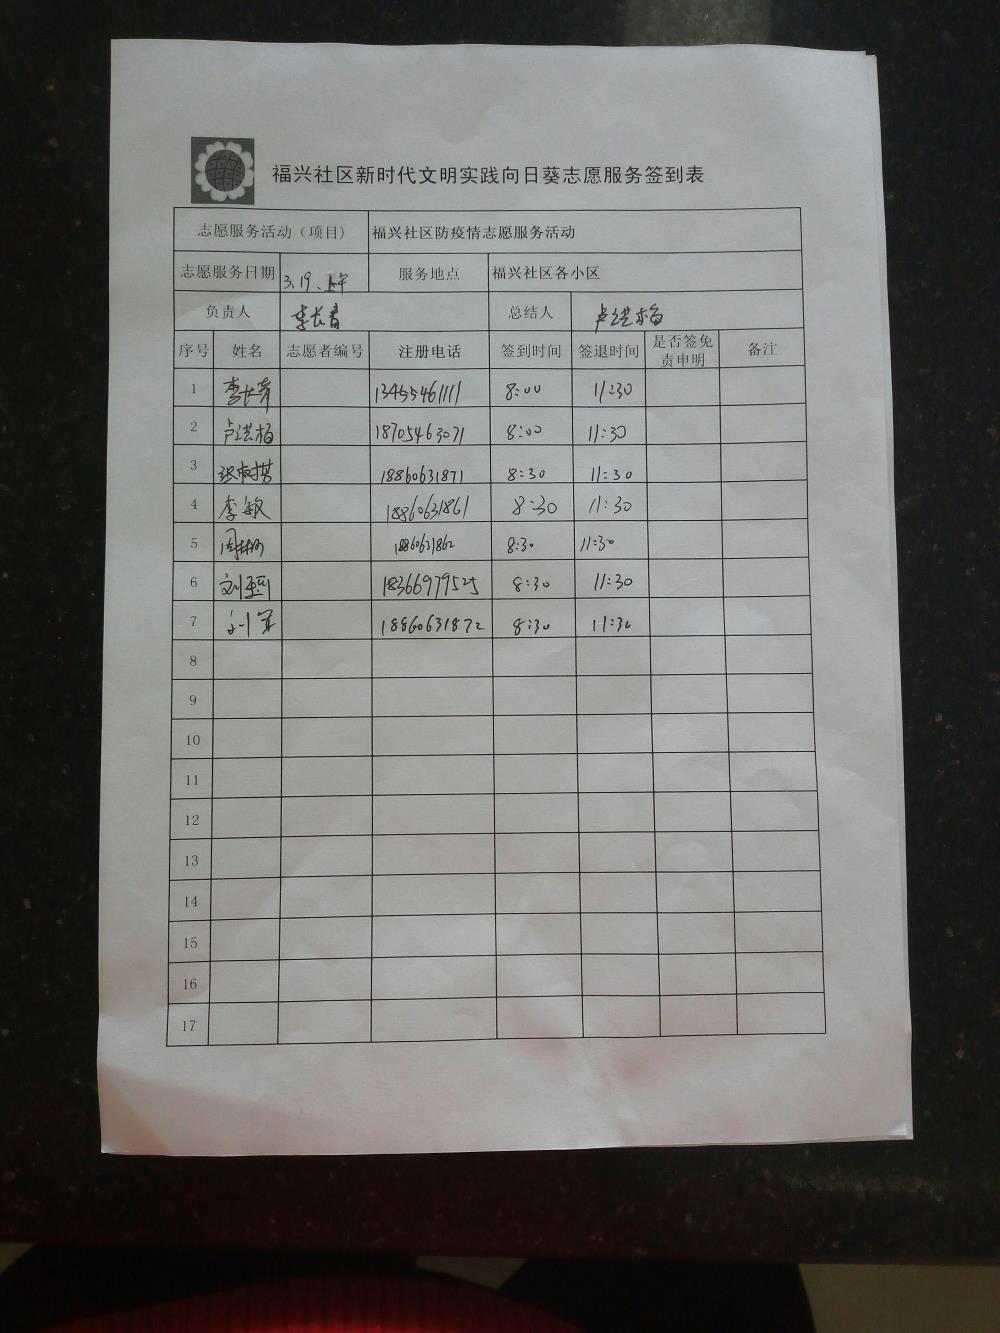 福兴社区新时代文明实践向日葵志愿服务签到表
志愿服务活动（项目） 福兴社区防疫情志愿服务活动
志愿服务日期 3.19.上午 服务地点 福兴社区各小区
负责人 李长青 总结人 卢洪梅
序号 姓名 志愿者编号 注册电话 签到时间 签退时间 是否签免责申明 备注
1 李长青 13455461111 8:00 11:30
2 卢洪梅 18705463071 8:00 11:30
3 18860631871 8:30 11:30
4 李敏 18860631861 8:30 11:30
5 18860631862 8:30 11:30
6 18366979525 8:30 11:30
7 刘军 18860631872 8:30 11:30
8
9
10
11
12
13
14
15
16
17